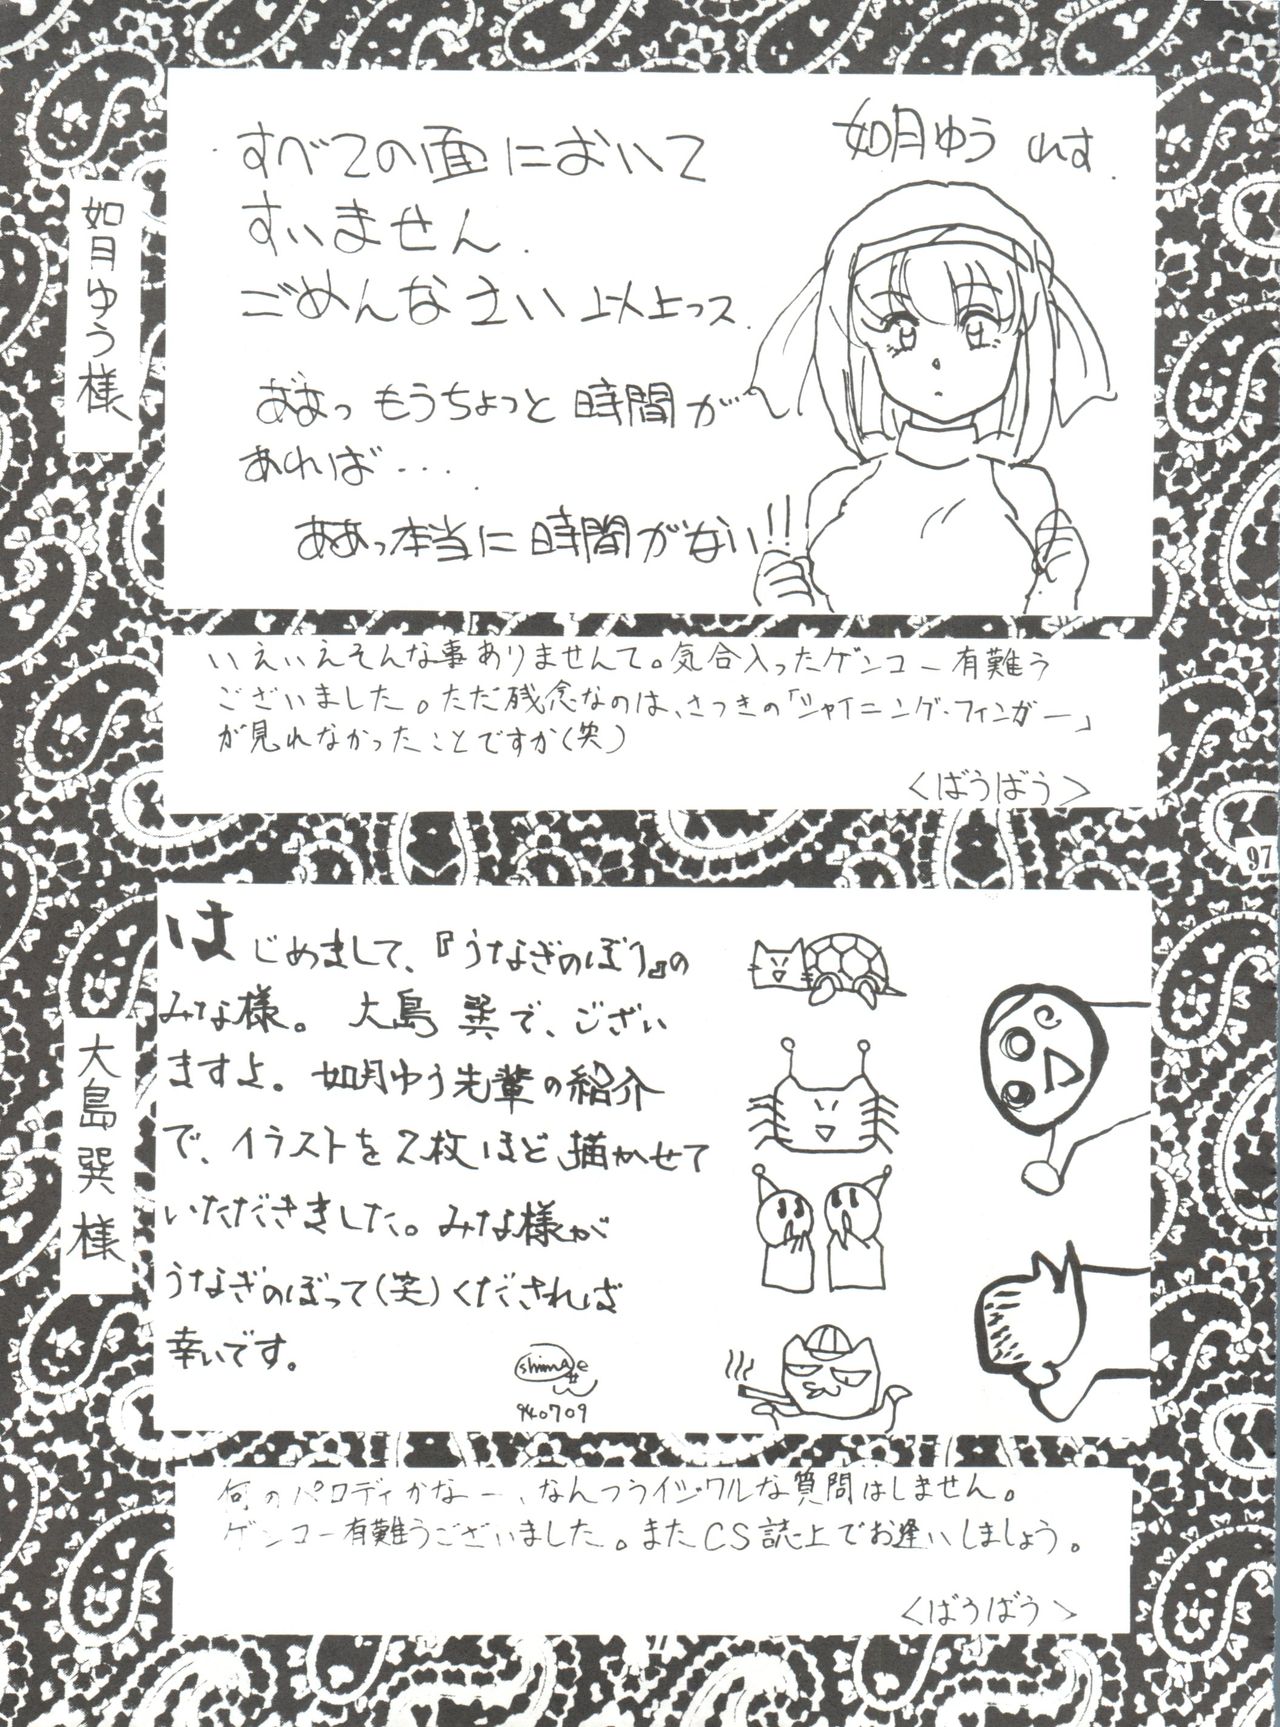 如月ゆう様
如月ゆう です.
すべての面において
すいません.
ごめんなさい 以上っス.
ああっ もうちょっと 時間が
あれば・・・.
ああっ本当に 時間がない!!
いえいえそんな事ありませんて。気合入ったゲンコー有難う
ございました。ただ残念なのは、さつきの「シャイニング・フィンガー」
が見れなかったことですか(笑)
<ばうばう>
97
大島巽様
はじめまして、『うなぎのぼり』の
みな様。 大島 巽で、ござい
ますよ。如月ゆう先輩の紹介
で、イラストを2枚ほど、描かせて
いただきました。みな様が
うなぎのぼって(笑)くだされば
幸いです。
940709
何のパロディかなー、なんつうイジワルな質問はしません。
ゲンコー有難うございました。またCS誌上でお逢いしましょう。
<ばうばう>